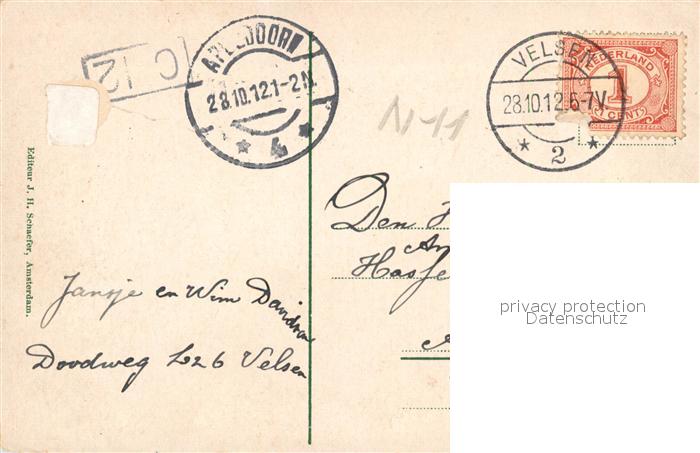 APELDOORN
28.10.12.1-2N
4
C 12
VELSEN
28.10.12.6-7V
2
NEDERLAND
1
CENT
N-11
Editeur J. H. Schaefer, Amsterdam.
Den
Jansje en Wim
Doodweg L26 Velsen
privacy protection
Datenschutz